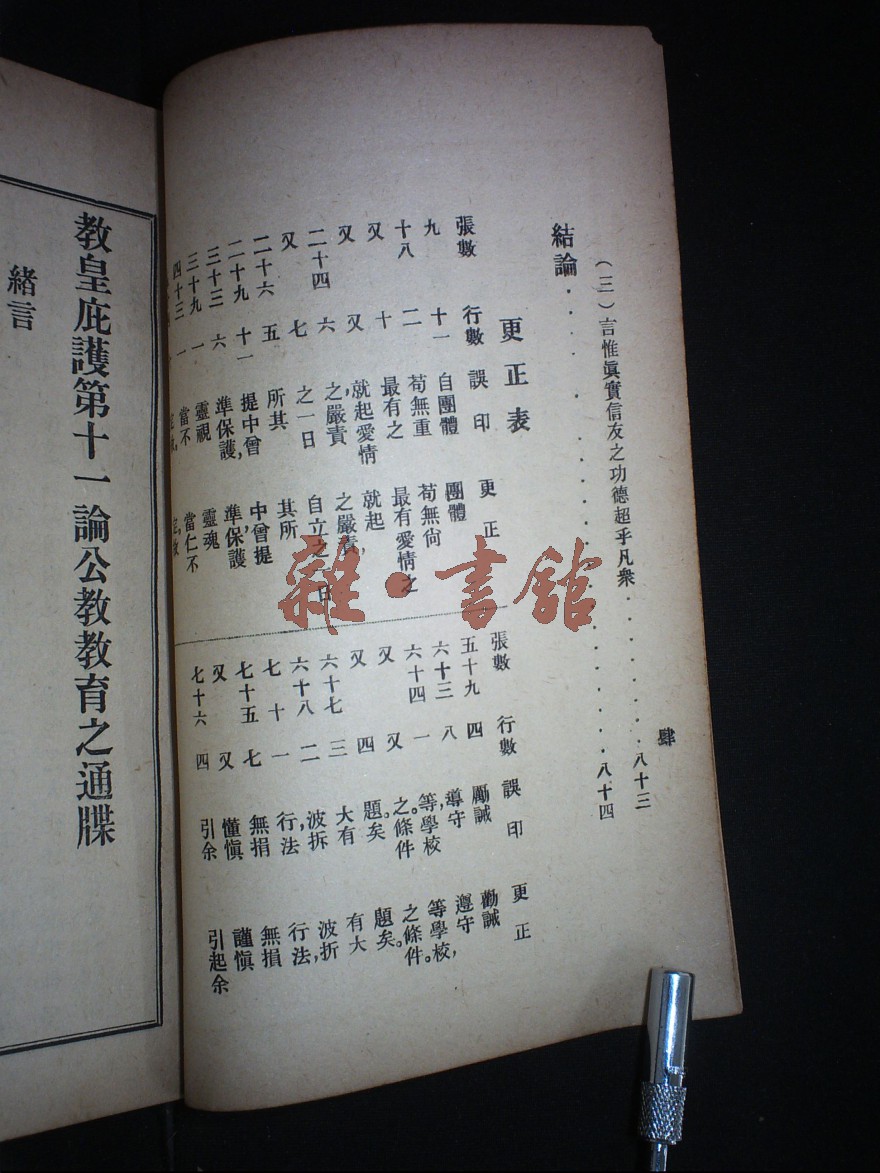 肆
(三)言惟眞實信友之功德超乎凡衆..........八十三
結論..........八十四
更正表
張數 行數 誤印 更正
九 十一 自團體 團體
十八 二 苟無重 苟無尙
又 十 最有之 最有愛情之
又 又 就起愛情 就起
二十四 六 之嚴責 之嚴責,
又 七 之一日 自立之一日
二十六 五 所其 其所
二十九 十一 提中曾 中曾提
三十三 六 準保護, 準,保護
三十九 一 靈視 靈魂
四十三 一 當不 當仁不
張數 行數 誤印 更正
五十九 四 勵誡 勸誡
六十三 八 導守 遵守
六十四 一 等,學校 等學校,
又 又 之。條件 之條件。
又 四 題。矣 題矣。
六十七 三 大有 有大
六十八 二 波拆 波折
七十 一 行,法 行法,
七十五 七 無捐 無損
又 又 懂愼 謹愼
七十六 四 引余 引起余
教皇庇護第十一論公教教育之通牒
緒言
雜·書館